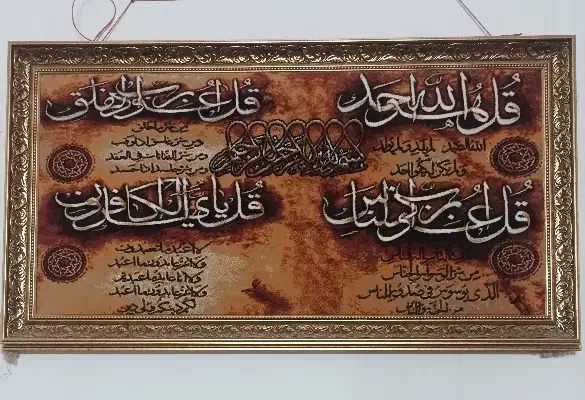 قل هو الله احد
الله الصمد لم يلد ولم يولد
ولم يكن له كفوا احد
قل اعوذ برب الفلق
من شر ما خلق
ومن شر غاسق اذا وقب
ومن شر النفاثات فى العقد
ومن شر حاسد اذا حسد
بسم الله الرحمن الرحيم
قل اعوذ برب الناس
من شر الوسواس الخناس
الذى يوسوس فى صدور الناس
من الجنة والناس
قل يا ايها الكافرون
لا اعبد ما تعبدون
ولا انتم عابدون ما اعبد
ولا انا عابد ما عبدتم
ولا انتم عابدون ما اعبد
لكم دينكم ولى دين